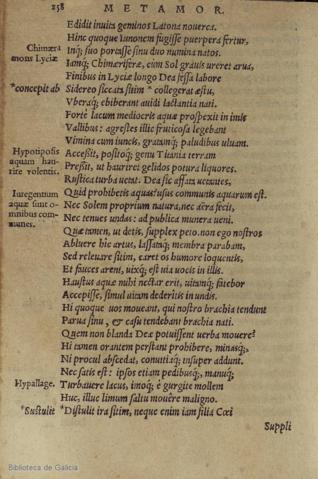 258 METAMOR.
Edidit inuita geminos Latona nouerca.
Hinc quoque Iunonem fugisse puerpera fertur,
Inq; suo portasse sinu duo numina natos.
Chimæra
mons Lyciæ
Iamq; Chimæriferæ, cum Sol grauis vreret arua,
Finibus in Lyciæ longo Dea fessa labore
*concepit ab
Sidereo siccata sitim * collegerat æstu,
Vberaq; ebiberant auidi lactantia nati.
Forte lacum mediocris aquæ prospexit in imis
Vallibus: agrestes illic fruticosa legebant
Vimina cum iuncis, gratamq; paludibus vluam.
Hypotiposis
aquam hau-
rire volentis.
Accessit, positoq; genu Titania terram
Pressit, ut hauriret gelidos potura liquores.
Rustica turba uetat. Dea sic affata uetantes,
Iuregentium
aquæ sunt o-
mnibus com-
munes.
Quid prohibetis aquas? usus communis aquarum est.
Nec Solem proprium natura, nec aëra fecit,
Nec tenues undas: ad publica munera ueni.
Quæ tamen, ut detis, supplex peto. non ego nostros
Abluere hic artus, lassataq; membra parabam,
Sed releuare sitim, caret os humore loquentis,
Et fauces arent, uixq; est uia uocis in illis.
Haustus aquæ mihi nectar erit, uitamq; fatebor
Accepisse, simul uitam dederitis in undis.
Hi quoque uos moueant, qui nostro brachia tendunt
Parua sinu, & casu tendebant brachia nati.
Quem non blanda Deæ potuissent uerba mouere?
Hi tamen orantem perstant prohibere, minasq;,
Ni procul abscedat, conuitiaq; insuper addunt.
Nec satis est: ipsos etiam pedibusq;, manuq;
Hypallage.
Turbauere lacus, imoq; è gurgite mollem
Huc, illuc limum saltu mouêre maligno.
*Sustulit
*Distulit ira sitim, neque enim iam filia Cœi
Suppli
Biblioteca de Galicia